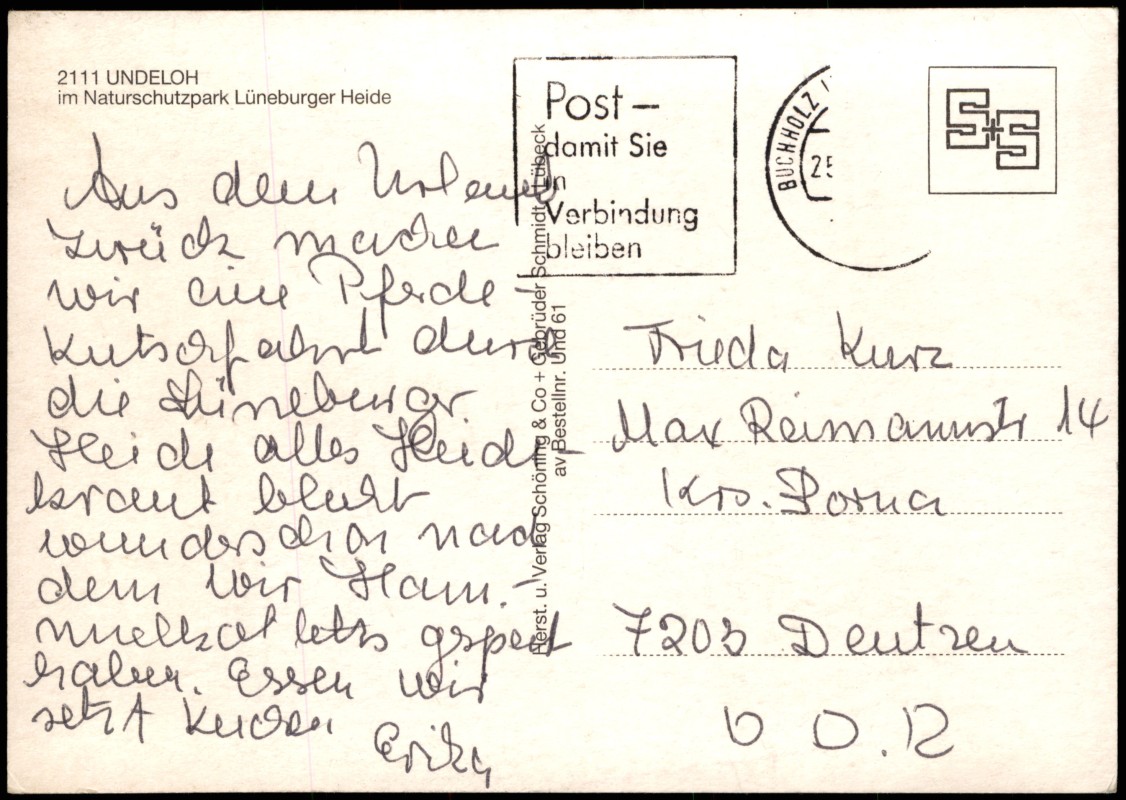 2111 UNDELOH
im Naturschutzpark Lüneburger Heide
Aus dem Urlaub
zurück machen
wir eine Pferde-
kutschfahrt durch
die Lüneburger
Heide alles Heide-
kraut blüht
wunderschön nach
dem wir Ham-
gespeist
haben. Essen wir
jetzt Kuchen
Erika
Herst. u. Verlag Schöning & Co + Gebrüder Schmidt, Lübeck
av Bestellnr. Und 61
Post –
damit Sie
in
Verbindung
bleiben
BUCHHOLZ
25
S+S
Frieda Kurz
Max Reimannstr 14
Krs. Borna
7203 Deutzen
D D.R